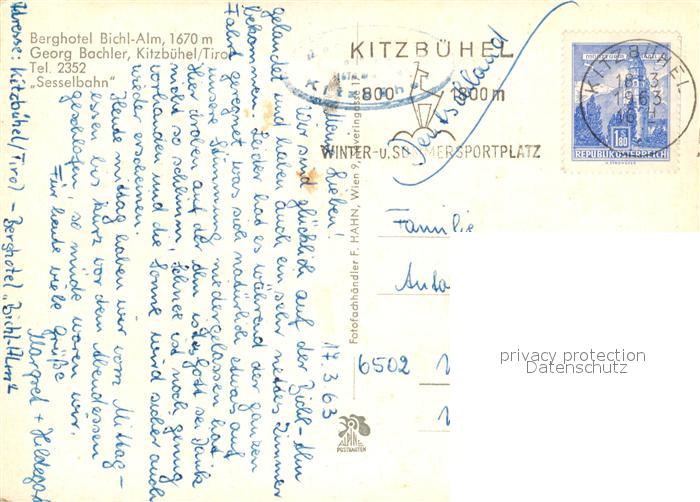 Berghotel Bichl-Alm, 1670 m
Georg Bachler, Kitzbühel/Tirol
Tel. 2352
„Sesselbahn"
17.3.63
Meine Lieben!
Wir sind glücklich auf der Bichl-Alm
gelandet und haben auch ein sehr nettes Zimmer
bekommen. Leider hat es während der ganzen
Fahrt geregnet, was sich natürlich etwas auf
unsere Stimmung niedergelassen hat.
Hier droben auf der Alm ist es Gott sei Dank
nicht so schlimm, Schnee ist noch genug
vorhanden und die Sonne wird sicher auch
wieder erscheinen.
Heute mittag haben wir vom Mittag-
essen bis kurz vor dem Abendessen
geschlafen, so müde waren wir.
Für heute viele Grüße
Margret + Hildegard
Adresse: Kitzbühel/Tirol - Berghotel „Bichl-Alm"
Fotofachhändler F. HAHN, Wien 9,
ALPINE
POSTKARTEN
KITZBÜHEL
800 m
WINTER-u. SOMMERSPORTPLATZ
KITZBÜHEL
18-3
1963
1.80
REPUBLIK ÖSTERREICH
Deutschland
Familie
6502
privacy protection
Datenschutz